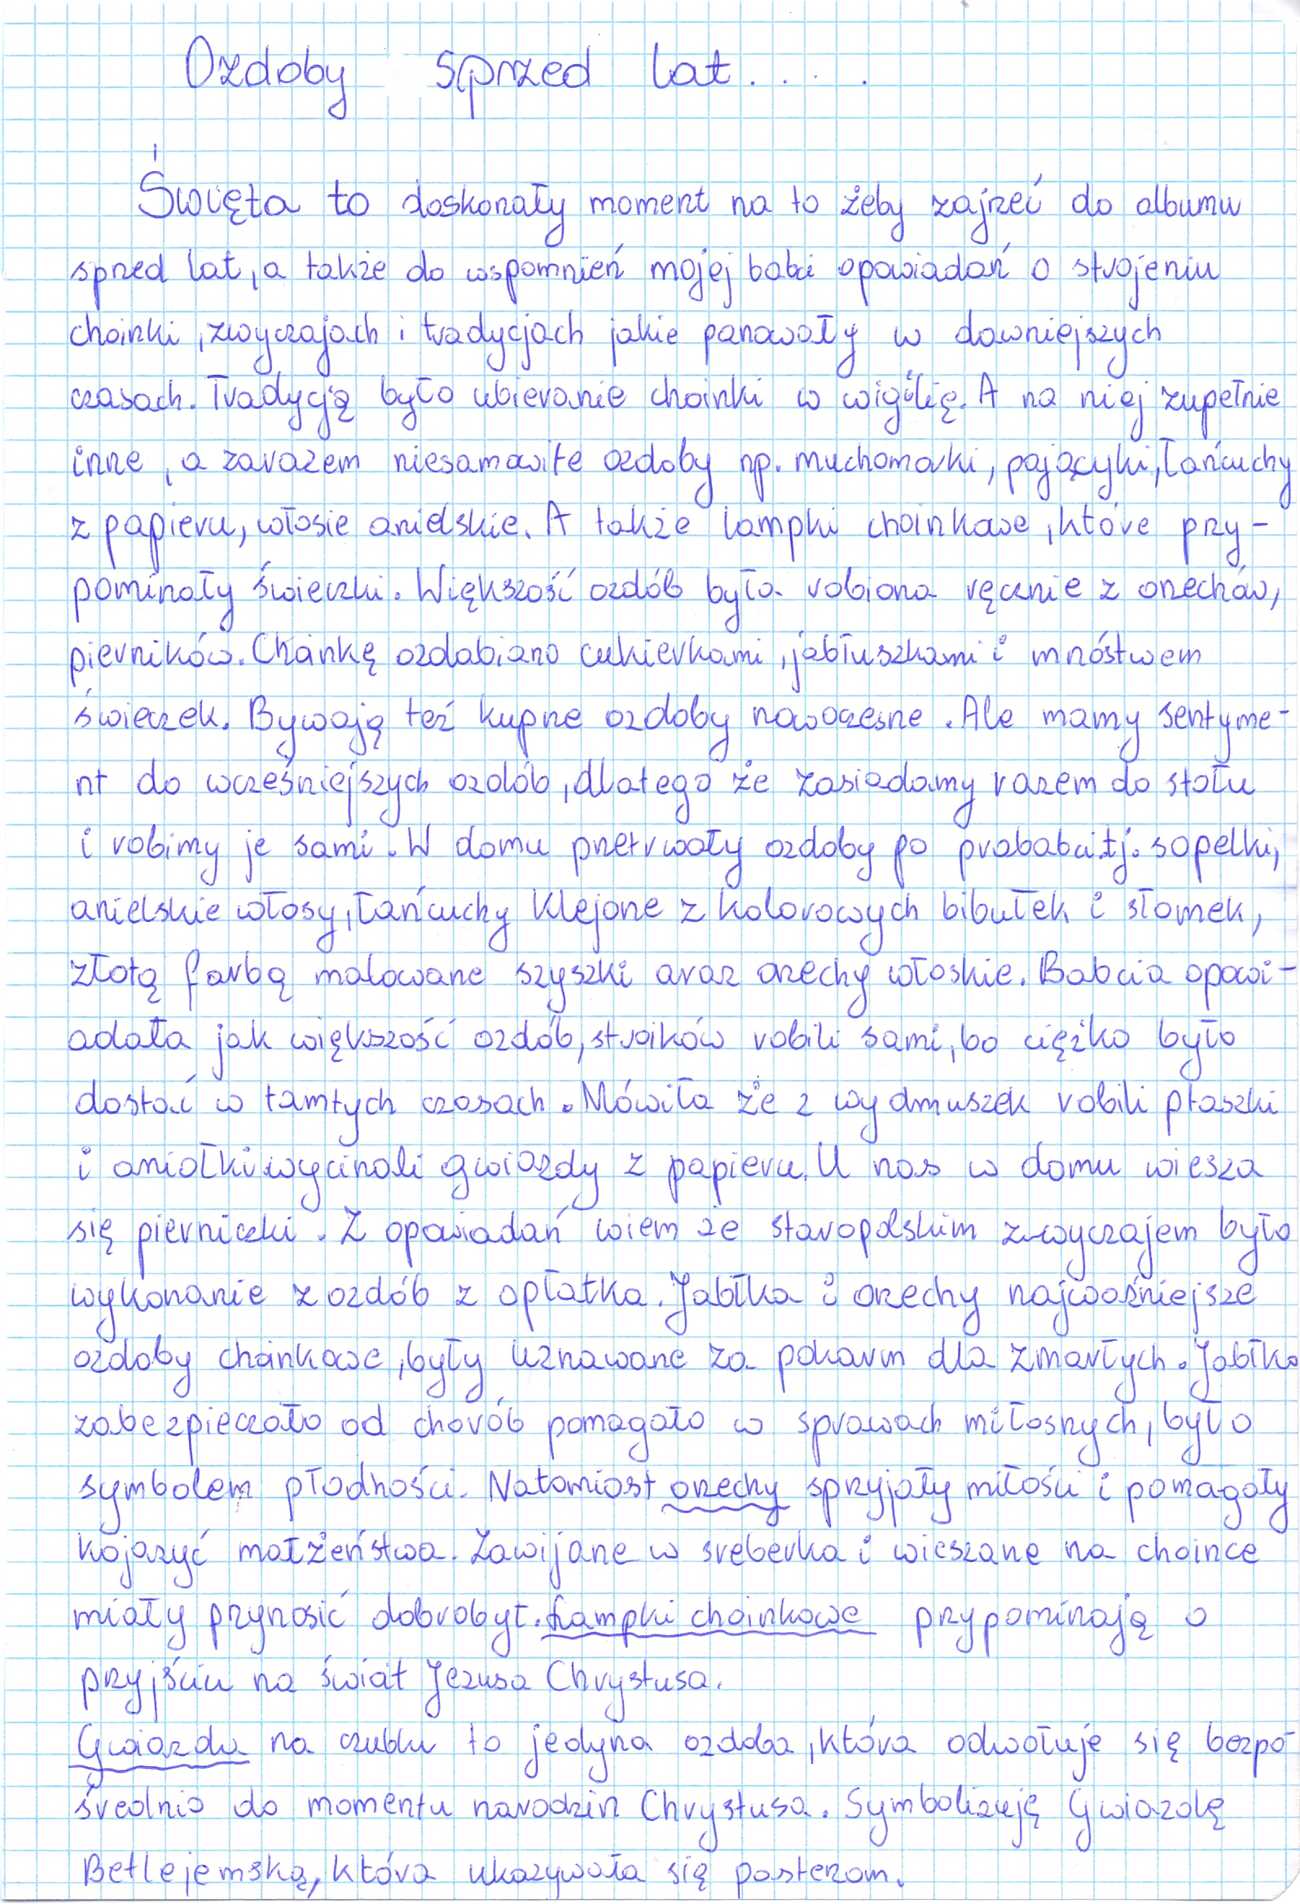 Ozdoby sprzed lat.....
Święta to doskonały moment na to żeby zajrzeć do albumu
sprzed lat, a także do wspomnień mojej babci opowiadań o strojeniu
choinki, zwyczajach i tradycjach jakie panowały w dawniejszych
czasach. Tradycją było ubieranie choinki w wigilię. A na niej zupełnie
inne, a zarazem niesamowite ozdoby np. muchomorki, pajacyki, łańcuchy
z papieru, włosie anielskie. A także lampki choinkowe, które przy-
pominały świeczki. Większość ozdób była robiona ręcznie z orzechów,
pierników. Choinkę ozdabiano cukierkami, jabłuszkami i mnóstwem
świeczek. Bywają też kupne ozdoby nowoczesne. Ale mamy sentyme-
nt do wcześniejszych ozdób, dlatego że zasiadamy razem do stołu
i robimy je sami. W domu przetrwały ozdoby po prababci.tj. sopelki,
anielskie włosy, łańcuchy klejone z kolorowych bibułek i słomek,
złotą farbą malowane szyszki oraz orzechy włoskie. Babcia opowi-
adała jak większość ozdób, stroików robili sami, bo ciężko było
dostać w tamtych czasach. Mówiła że z wydmuszek robili ptaszki
i aniołki wycinali gwiazdy z papieru. U nas w domu wiesza
się pierniczki. Z opowiadań wiem że staropolskim zwyczajem było
wykonanie z ozdób z opłatka. Jabłka i orzechy najważniejsze
ozdoby choinkowe, były uznawane za pokarm dla zmarłych. Jabłko
zabezpieczało od chorób pomagało w sprawach miłosnych, było
symbolem płodności. Natomiast orzechy sprzyjały miłości i pomagały
kojarzyć małżeństwa. Zawijane w sreberka i wieszane na choince
miały przynosić dobrobyt. Lampki choinkowe przypominają o
przyjściu na świat Jezusa Chrystusa.
Gwiazda na czubku to jedyna ozdoba, która odwołuje się bezpo-
średnio do momentu narodzin Chrystusa. Symbolizują Gwiazdę
Betlejemską, która ukazywała się pasterzom.